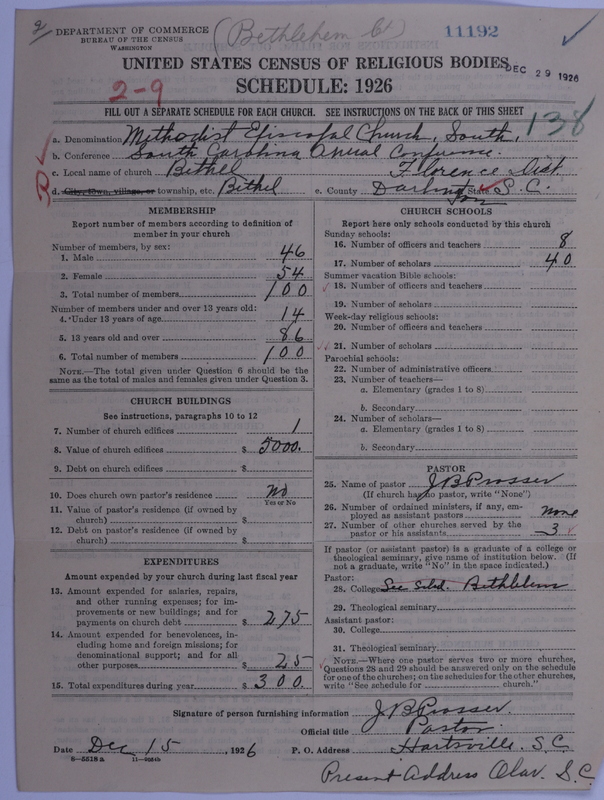 2 DEPARTMENT OF COMMERCE (Bethlehem Ct) 11192
BUREAU OF THE CENSUS
WASHINGTON
UNITED STATES CENSUS OF RELIGIOUS BODIES
DEC 29 1926
2-9 SCHEDULE: 1926
FILL OUT A SEPARATE SCHEDULE FOR EACH CHURCH. SEE INSTRUCTIONS ON THE BACK OF THIS SHEET
138
a. Denomination Methodist Episcopal Church, South,
b. Conference South Carolina Anual Conference.
c. Local name of church Bethel Florence Dist
d. City, town, village, or township, etc. Bethel e. County Darlington State S.C.
MEMBERSHIP
Report number of members according to definition of
member in your church
Number of members, by sex:
1. Male 46
2. Female 54
3. Total number of members 100
Number of members under and over 13 years old:
4. Under 13 years of age 14
5. 13 years old and over 86
6. Total number of members 100
NOTE.—The total given under Question 6 should be the
same as the total of males and females given under Question 3.
CHURCH BUILDINGS
See instructions, paragraphs 10 to 12
7. Number of church edifices 1
8. Value of church edifices $ 5000.
9. Debt on church edifices $
10. Does church own pastor's residence no
Yes or No
11. Value of pastor's residence (if owned by
church) $
12. Debt on pastor's residence (if owned by
church) $
EXPENDITURES
Amount expended by your church during last fiscal year
13. Amount expended for salaries, repairs,
and other running expenses; for im-
provements or new buildings; and for
payments on church debt $ 275
14. Amount expended for benevolences, in-
cluding home and foreign missions; for
denominational support; and for all
other purposes $ 25
15. Total expenditures during year $ 300.
CHURCH SCHOOLS
Report here only schools conducted by this church
Sunday schools:
16. Number of officers and teachers 8
17. Number of scholars 40
Summer vacation Bible schools:
18. Number of officers and teachers
19. Number of scholars
Week-day religious schools:
20. Number of officers and teachers
21. Number of scholars
Parochial schools:
22. Number of administrative officers
23. Number of teachers—
a. Elementary (grades 1 to 8)
b. Secondary
24. Number of scholars—
a. Elementary (grades 1 to 8)
b. Secondary
PASTOR
25. Name of pastor J B Prosser
(If church has no pastor, write "None")
26. Number of ordained ministers, if any, em-
ployed as assistant pastors none
27. Number of other churches served by the
pastor or his assistants 3
If pastor (or assistant pastor) is a graduate of a college or
theological seminary, give name of institution below. (If
not a graduate, write "No" in the space indicated.)
Pastor:
28. College See Schd. Bethlehem
29. Theological seminary
Assistant pastor:
30. College
31. Theological seminary
NOTE.—Where one pastor serves two or more churches,
Questions 28 and 29 should be answered only on the schedule
for one of the churches; on the schedules for the other churches,
write "See schedule for church."
Signature of person furnishing information J B Prosser
Official title Pastor
Date Dec 15, 1926 P. O. Address Hartsville. S.C.
8-5518 a
Present Address Olar. S.C.